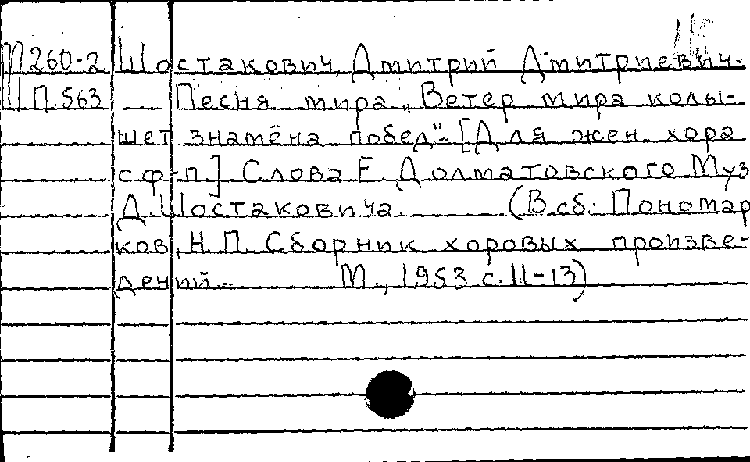 М260-2 Шостакович, Дмитрий Дмитриевич.
Ш П563 Песня мира „Ветер мира колы-
шет знамёна побед"- [Для жен. хора
с ф-п.] Слова Е. Долматовского Муз
Д. Шостаковича. (В сб: Пономар
ков, Н.П. Сборник хоровых произве-
дений. М., 1953 с. 11-13)